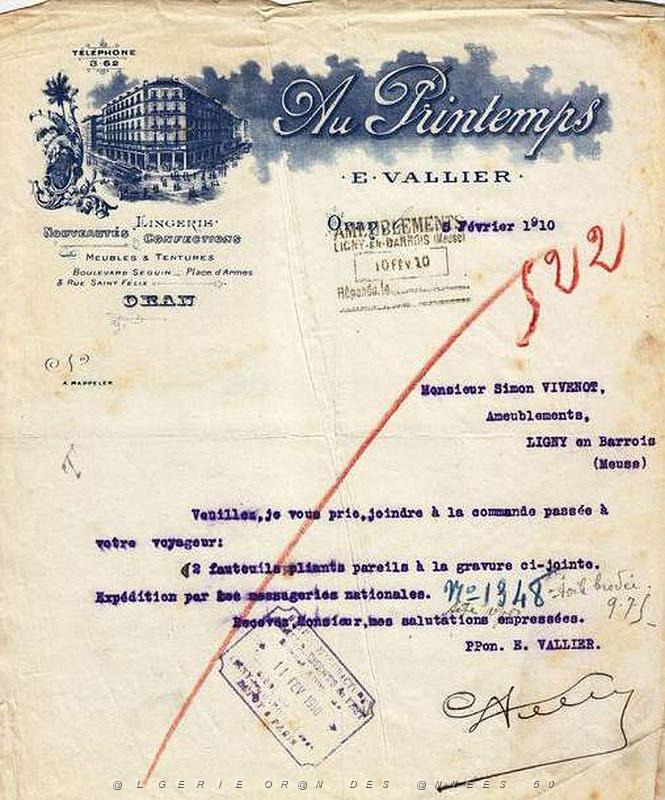 TÉLÉPHONE
3·62
Au Printemps
· E · VALLIER ·
LINGERIE
NOUVEAUTÉS
CONFECTIONS
MEUBLES & TENTURES
BOULEVARD SEGUIN _ Place d'Armes
& RUE SAINT FÉLIX
ORAN
A RAPPELER
5 Février 1910
AMEUBLEMENTS
LIGNY-EN-BARROIS (Meuse)
10 FEV 10
Répondu le
522
Monsieur Simon VIVENOT,
Ameublements,
LIGNY en Barrois
(Meuse)
Veuillez,je vous prie,joindre à la commande passée à
votre voyageur:
2 fauteuils pliants pareils à la gravure ci-jointe.
Expédition par les messageries nationales.
No 1348
toile brodée.
9.75
Recevez,Monsieur,mes salutations empressées.
PPon. E. VALLIER.
11 FEV 1910
@LGERIE OR@N DES @NNEES 50